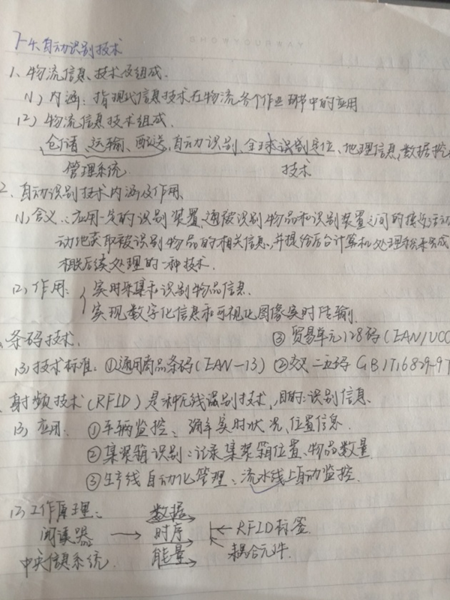 7-4.自动识别技术
1、物流信息技术及组成.
(1) 内涵：指现代信息技术在物流各个作业环节中的应用
(2) 物流信息技术组成.
仓储、运输、配送,自动识别、全球识别定位、地理信息,数据挖
管理系统 技术
2、自动识别技术内涵及作用.
(1)含义：应用一定的识别装置,通过识别物品和识别装置之间的接近活动
动地获取被识别物品的相关信息,并提供给后台计算机处理系统来完成
相关后续处理的一种技术.
(2) 作用： 实用采集和识别物品信息.
实现数字化信息和可视化图像实时传输
条码技术. ③ 贸易单元128码(EAN/UCC
(3)技术标准：①通用商品条码(EAN-13) ② 二五码 GB/T16829-97
射频技术(RFID) 是一种无线识别技术,目的：识别信息.
(3) 应用： ①车辆监控： 实时状况,位置信息.
②集装箱识别：记录集装箱位置、物品数量
③生产线自动化管理、流水线上自动监控.
(2)工作原理： 数据
阅读器 → 时序 ← RFID标签
中央信息系统. 能量 耦合元件.